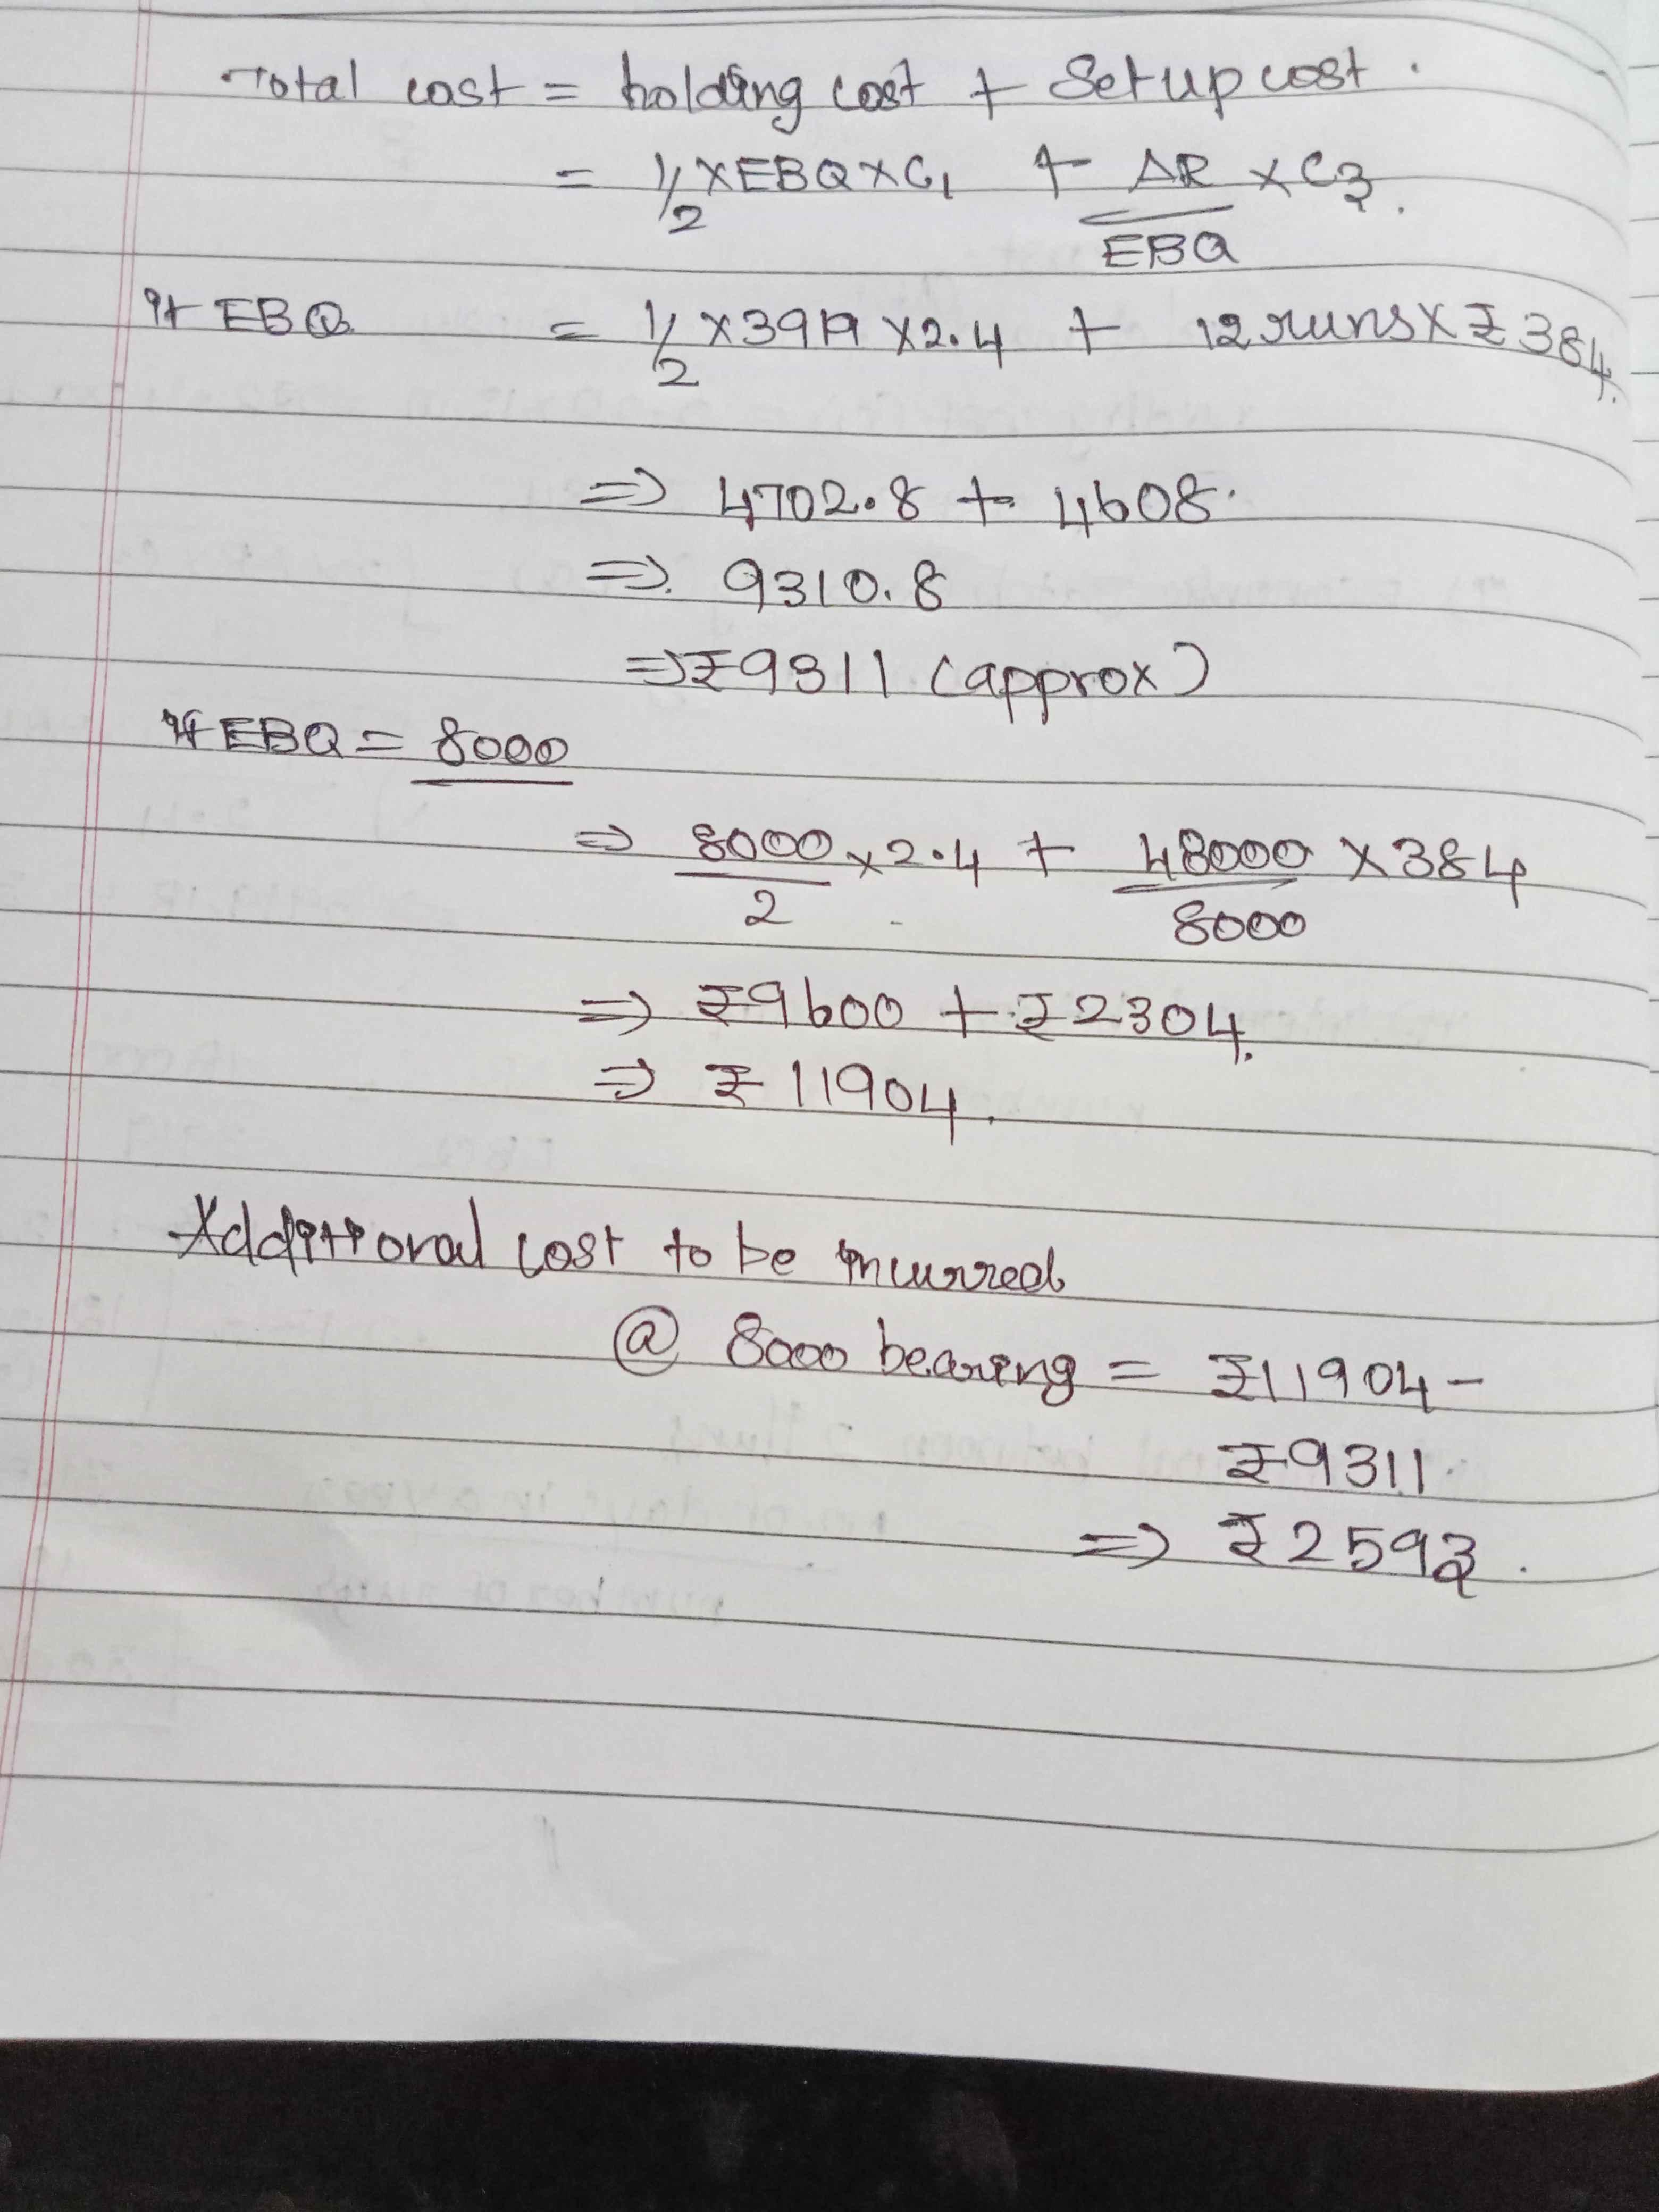 Total cost = holding cost + Setup cost.
= 1/2 × EBQ × C1 + AR/EBQ × C3.
If EBQ = 1/2 × 3919 × 2.4 + 12 runs × ₹384.
⇒ 4702.8 + 4608.
⇒ 9310.8
⇒ ₹9311 (approx)
If EBQ = 8000
⇒ 8000/2 × 2.4 + 48000/8000 × 384
⇒ ₹9600 + ₹2304.
⇒ ₹11904.
Additional cost to be incurred
@ 8000 bearing = ₹11904 -
₹9311.
⇒ ₹2593.